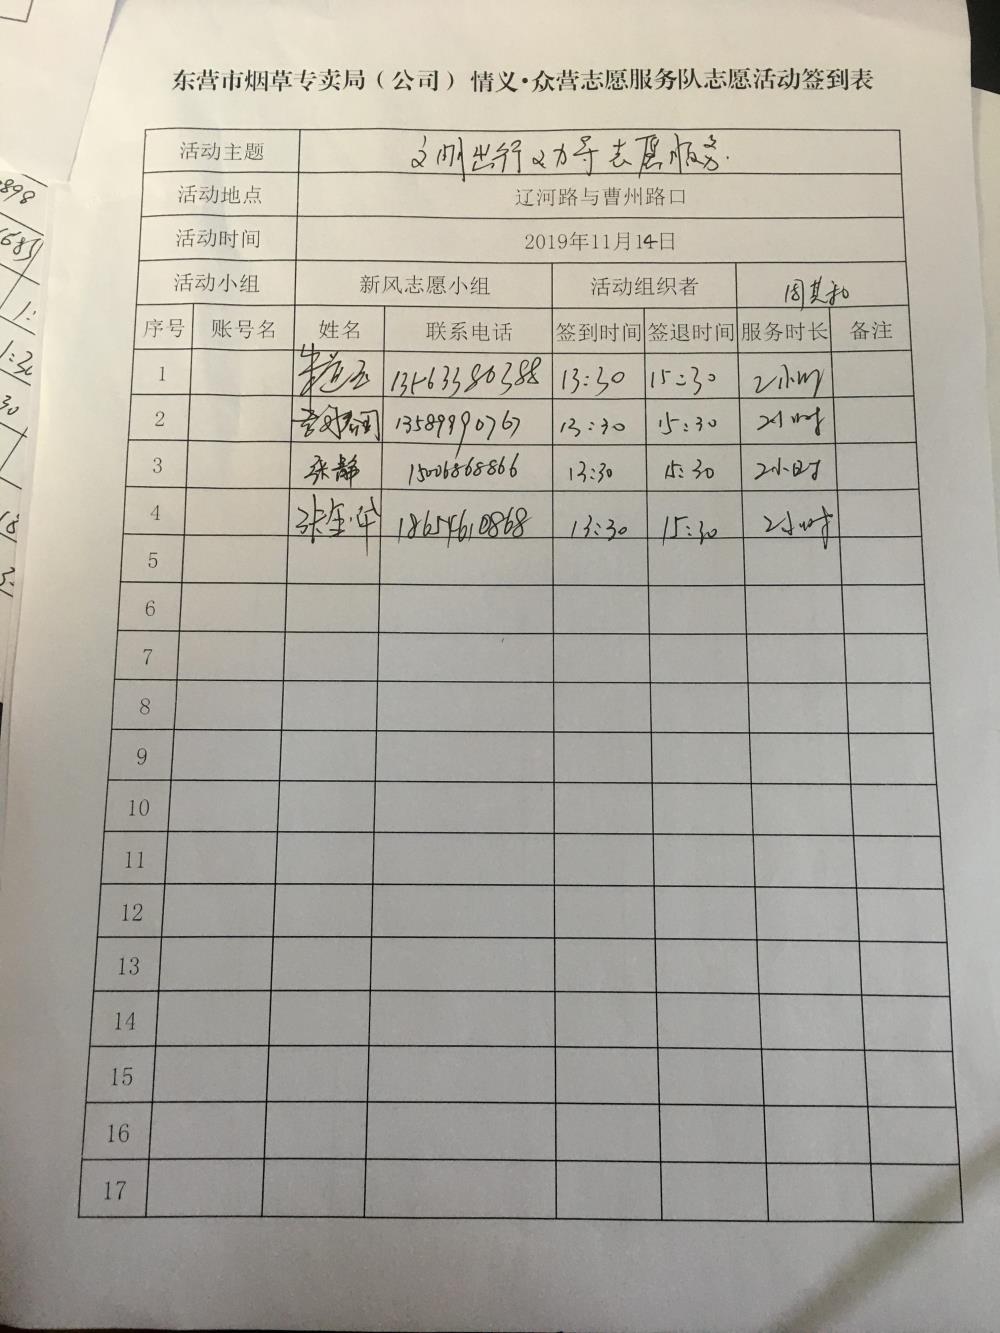 东营市烟草专卖局（公司）情义·众营志愿服务队志愿活动签到表
活动主题 文明出行劝导志愿服务.
活动地点 辽河路与曹州路口
活动时间 2019年11月14日
活动小组 新风志愿小组 活动组织者 周其和
序号 账号名 姓名 联系电话 签到时间 签退时间 服务时长 备注
1 13563380388 13:30 15:30 2小时
2 13589990767 13:30 15:30 2小时
3 张静 15006868866 13:30 15:30 2小时
4 张金华 18654610868 13:30 15:30 2小时
5
6
7
8
9
10
11
12
13
14
15
16
17